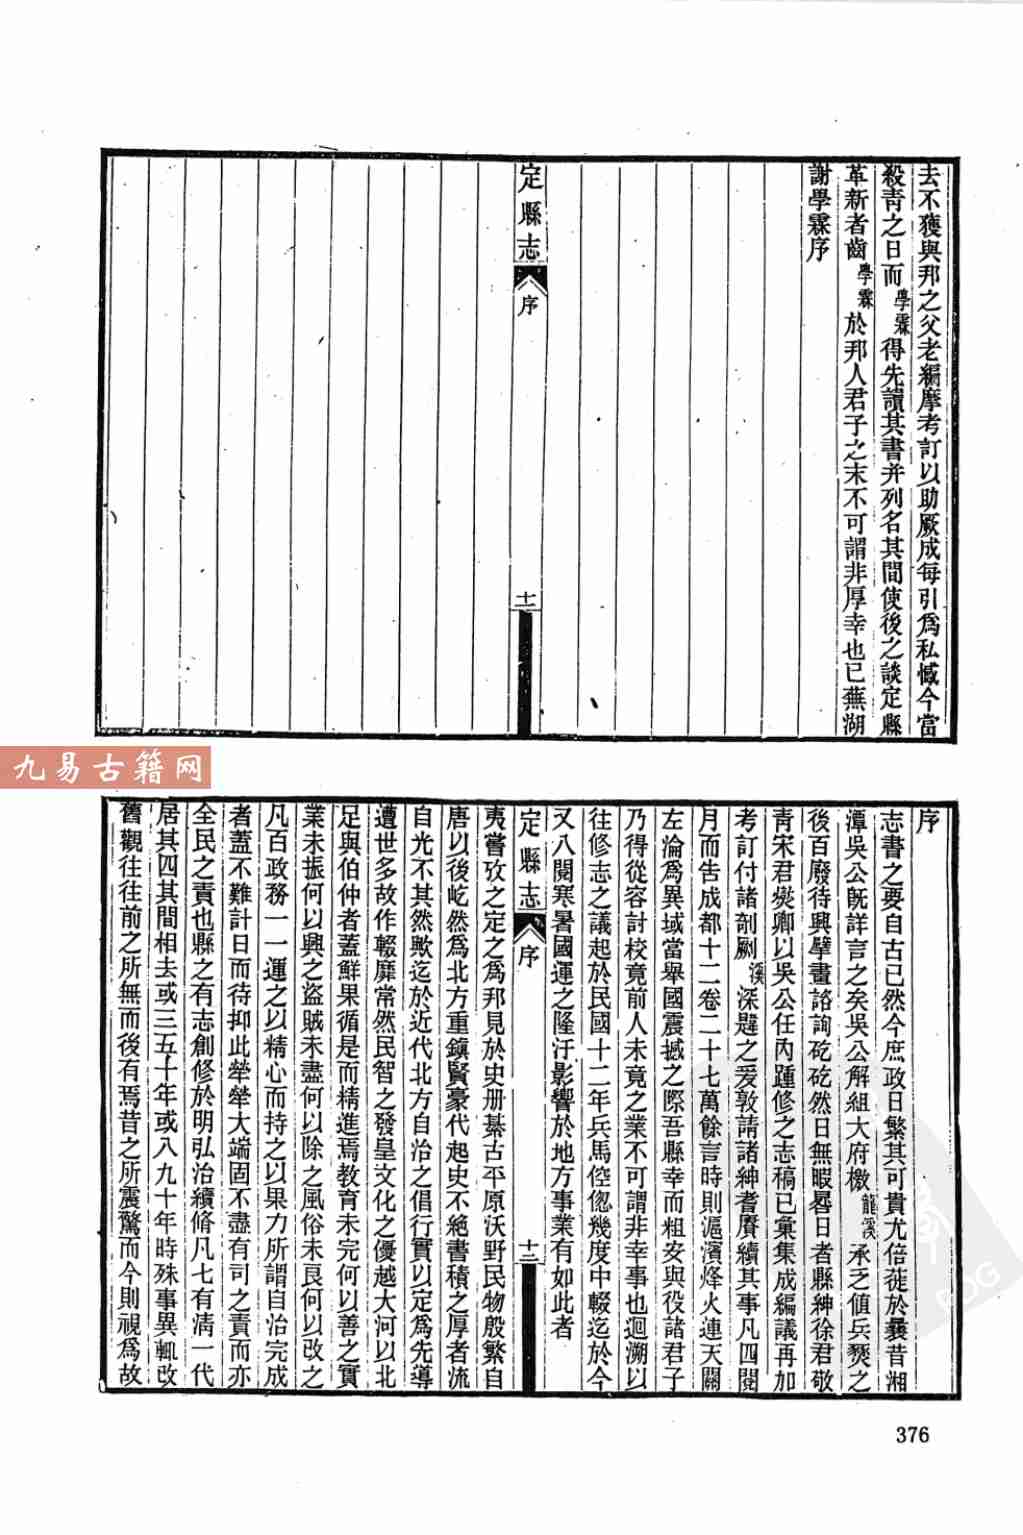 去不獲與邦之父老編摩考訂以助厥成每引爲私憾今當
殺青之日而學霖得先讀其書并列名其間使後之談定縣
革新者齒學霖於邦人君子之末不可謂非厚幸也已蕪湖
謝學霖序
定縣志
序
十一
九易古籍网
序
志書之要自古已然今庶政日繁其可貴尤倍蓰於曩昔湘
潭吳公旣詳言之矣吳公解組大府檄龍溪承乏傎兵燹之
後百廢待興擘畫諮詢矻矻然日無暇晷日者縣紳徐君敬
青宋君燮卿以吳公任內踵修之志稿已彙集成編議再加
考訂付諸剞劂溪深韙之爰敦請諸紳耆賡續其事凡四閱
月而告成都十二卷二十七萬餘言時則滬濱烽火連天關
左淪爲異域當舉國震撼之際吾縣幸而粗安與役諸君子
乃得從容討校竟前人未竟之業不可謂非幸事也迴溯以
往修志之議起於民國十二年兵馬倥傯幾度中輟迄於今
又八閱寒暑國運之隆汙影響於地方事業有如此者
定縣志
序
十二
夷嘗攷之定之爲邦見於史册綦古平原沃野民物殷繁自
唐以後屹然爲北方重鎮賢豪代起史不絕書積之厚者流
自光不其然歟迄於近代北方自治之倡行實以定爲先導
遭世多故作輟靡常然民智之發皇文化之優越大河以北
足與伯仲者蓋鮮果循是而精進焉教育未完何以善之實
業未振何以興之盜賊未盡何以除之風俗未良何以改之
凡百政務一一運之以精心而持之以果力所謂自治完成
者蓋不難計日而待抑此犖犖大端固不盡有司之責而亦
全民之責也縣之有志創修於明弘治續脩凡七有淸一代
居其四其間相去或三五十年或八九十年時殊事異輒改
舊觀往往前之所無而後有焉昔之所震驚而今則視爲故
376